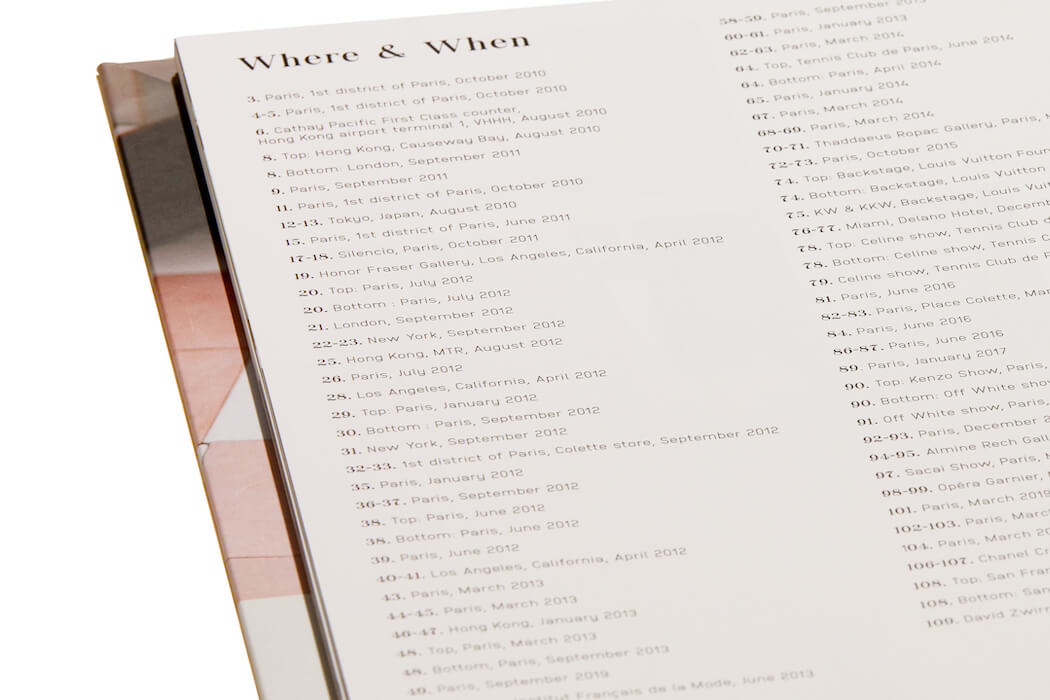 Where & When
3. Paris, 1st district of Paris, October 2010
4-5. Paris, 1st district of Paris, October 2010
6. Cathay Pacific First Class counter,
Hong Kong airport terminal 1, VHHH, August 2010
8. Top: Hong Kong, Causeway Bay, August 2010
8. Bottom: London, September 2011
9. Paris, September 2011
11. Paris, 1st district of Paris, October 2010
12-13. Tokyo, Japan, August 2010
15. Paris, 1st district of Paris, June 2011
17-18. Silencio, Paris, October 2011
19. Honor Fraser Gallery, Los Angeles, California, April 2012
20. Top: Paris, July 2012
20. Bottom : Paris, July 2012
21. London, September 2012
22-23. New York, September 2012
25. Hong Kong, MTR, August 2012
26. Paris, July 2012
28. Los Angeles, California, April 2012
29. Top: Paris, January 2012
30. Bottom : Paris, September 2012
31. New York, September 2012
32-33. 1st district of Paris, Colette store, September 2012
35. Paris, January 2012
36-37. Paris, September 2012
38. Top: Paris, June 2012
38. Bottom: Paris, June 2012
39. Paris, June 2012
40-41. Los Angeles, California, April 2012
43. Paris, March 2013
44-45. Paris, March 2013
46-47. Hong Kong, January 2013
48. Top, Paris, March 2013
48. Bottom, Paris, September 2013
49. Paris, September 2019
Institut Français de la Mode, June 2013
58-59. Paris, September 2013
60-61. Paris, January 2013
62-63. Paris, March 2014
64. Top, Tennis Club de Paris, June 2014
64. Bottom: Paris, April 2014
65. Paris, January 2014
67. Paris, March 2014
68-69. Paris, March 2014
70-71. Thaddaeus Ropac Gallery, Paris,
72-73. Paris, October 2015
74. Top: Backstage, Louis Vuitton
74. Bottom: Backstage, Louis Vuitton
75. KW & KKW, Backstage, Louis
76-77. Miami, Delano Hotel,
78. Top: Celine show, Tennis Club
78. Bottom: Celine show, Tennis
79. Celine show, Tennis Club de
81. Paris, June 2016
82-83. Paris, Place Colette,
84. Paris, June 2016
86-87. Paris, June 2016
89. Paris, January 2017
90. Top: Kenzo Show, Paris,
90. Bottom: Off White
91. Off White show, Paris,
92-93. Paris, December
94-95. Almine Rech
97. Sacai Show, Paris,
98-99. Opéra Garnier,
101. Paris, March 2019
102-103. Paris,
104. Paris, March
106-107. Chanel
108. Top: San
108. Bottom: San
109. David